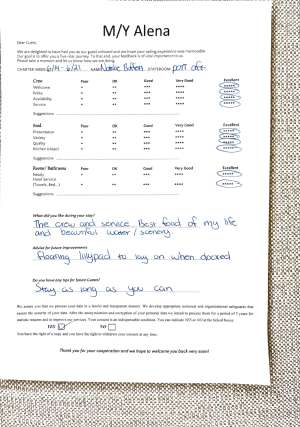 M/Y Alena
Dear Guest,
We are delighted to have had you as our guest onboard and we hope your sailing experience was memorable.
Our goal is to offer you a five-star journey. To that end, your feedback is of vital importance to us.
Please take a moment and let us know how we are doing.
CHARTER WEEK 6/14 - 6/21 NAME STATEROOM port aft
Crew Poor OK Good Very Good Excellent
Welcome * ** *** **** *****
Politeness * ** *** **** *****
Availability * ** *** **** *****
Service * ** *** **** *****
Suggestions:
Food Poor OK Good Very Good Excellent
Presentation * ** *** **** *****
Variety * ** *** **** *****
Quality * ** *** **** *****
* ** *** **** *****
Suggestions:
Rooms/ Bathrooms Poor OK Good Very Good Excellent
Beauty * ** *** **** *****
Hotel Service * ** *** **** *****
(Towels, Bed...)
Suggestions:
What did you like during your stay?
The crew and service. Best food of my life
and beautiful water/scenery.
Advice for future improvements
Floating lillypad to lay on when docked
Do you have any tips for future Guests?
Stay as long as you can
We assure you that we process your data in a lawful and transparent manner. We develop appropriate technical and organizational safeguards that
ensure the security of your data. After the anonymization and encryption of your personal data we intend to process them for a period of 5 years for
statistic reasons and to improve our services. Your consent is an indispensable condition. You can indicate YES or NO in the below boxes.
YES NO
You have the right of a copy and you have the right to withdraw your consent at any time.
Thank you for your cooperation and we hope to welcome you back very soon!